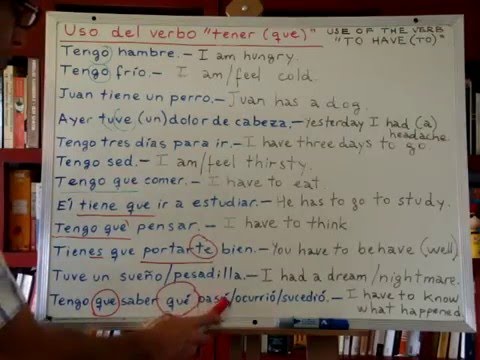 Uso del verbo "tener (que)" USE OF THE VERB
"TO HAVE (TO)"
Tengo hambre.— I am hungry.
Tengo frío.— I am/feel cold.
Juan tiene un perro.— Juan has a dog.
Ayer tuve (un) dolor de cabeza.— Yesterday I had (a)
headache
Tengo tres días para ir.— I have three days to go
Tengo sed.— I am/feel thirsty.
Tengo que comer.— I have to eat.
El tiene que ir a estudiar.— He has to go to study.
Tengo que pensar.— I have to think
Tienes que portarte bien.— You have to behave (well)
Tuve un sueño/pesadilla.— I had a dream/nightmare.
Tengo que saber qué pasó/ocurrió/sucedió.— I have to know
what happened.